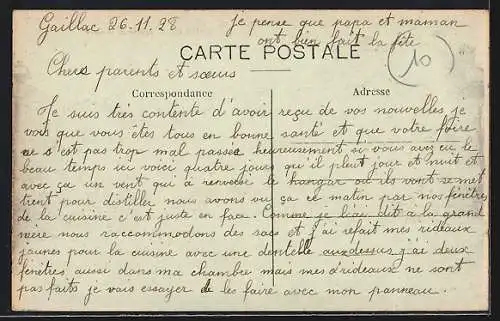 Gaillac 26.11.28 Je pense que papa et maman
ont bien fait la fête
CARTE POSTALE
10
Chers parents et sœurs
Correspondance
Adresse
Je suis très contente d'avoir reçu de vos nouvelles je
vois que vous êtes tous en bonne santé et que votre foire
ne s'est pas trop mal passée heureusement si vous avez eu le
beau temps ici voici quatre jours qu'il pleut jour et nuit et
avec ça un vent qui a renversé le hangar ou ils vont se met
trent pour distiller nous avons vu ça ce matin par nos fenêtres
de la cuisine c'est juste en face. Comme je l'ai dit à la grand
mère nous raccommodons des sacs et j'ai refait mes rideaux
jaunes pour la cuisine avec une dentelle auxdessus j'ai deux
fenêtres aussi dans ma chambre mais mes d'rideaux ne sont
pas faits je vais essayer de les faire avec mon panneau.